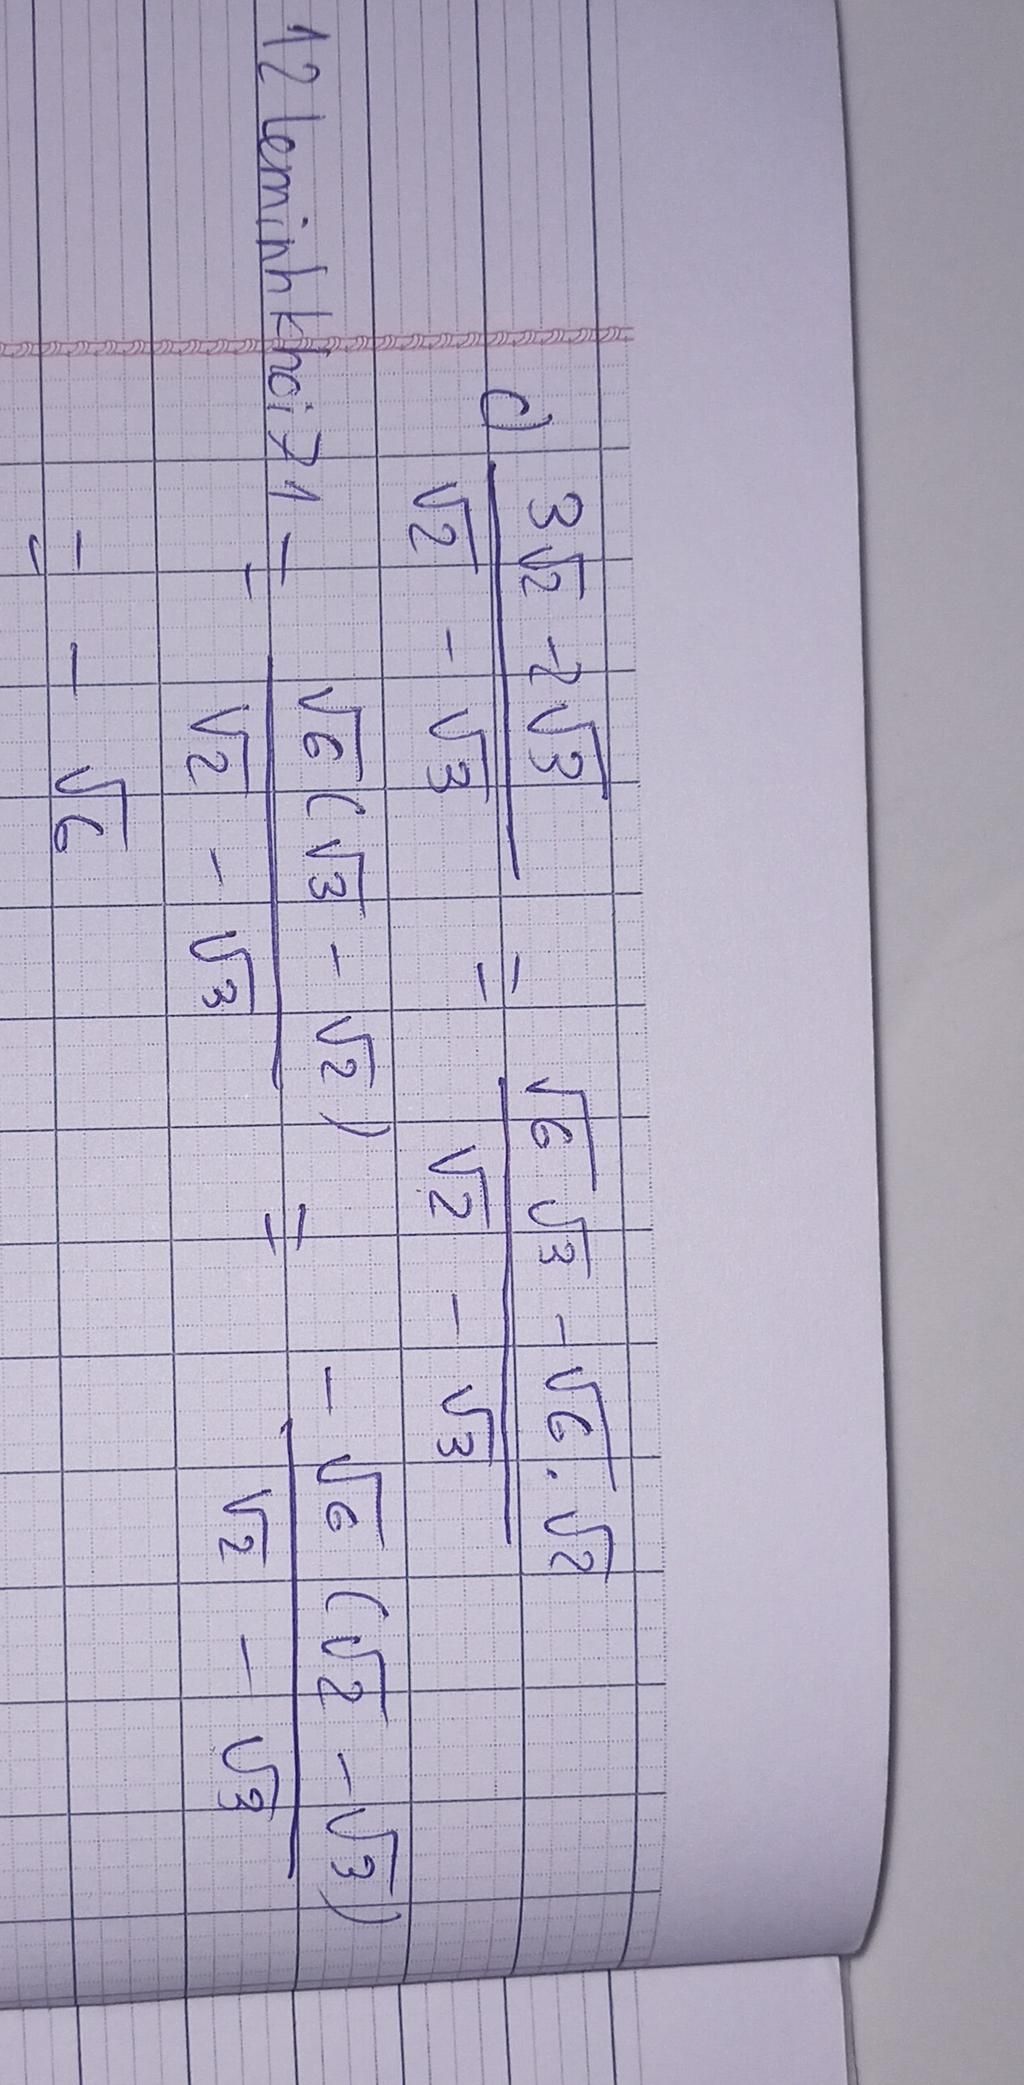 c) \frac{3\sqrt{2} - 2\sqrt{3}}{\sqrt{2} - \sqrt{3}} = \frac{\sqrt{6} \sqrt{3} - \sqrt{6} . \sqrt{2}}{\sqrt{2} - \sqrt{3}}
12 leminhkhoi71 = \frac{\sqrt{6} (\sqrt{3} - \sqrt{2})}{\sqrt{2} - \sqrt{3}} = \frac{- \sqrt{6} (\sqrt{2} - \sqrt{3})}{\sqrt{2} - \sqrt{3}}
= - \sqrt{6}